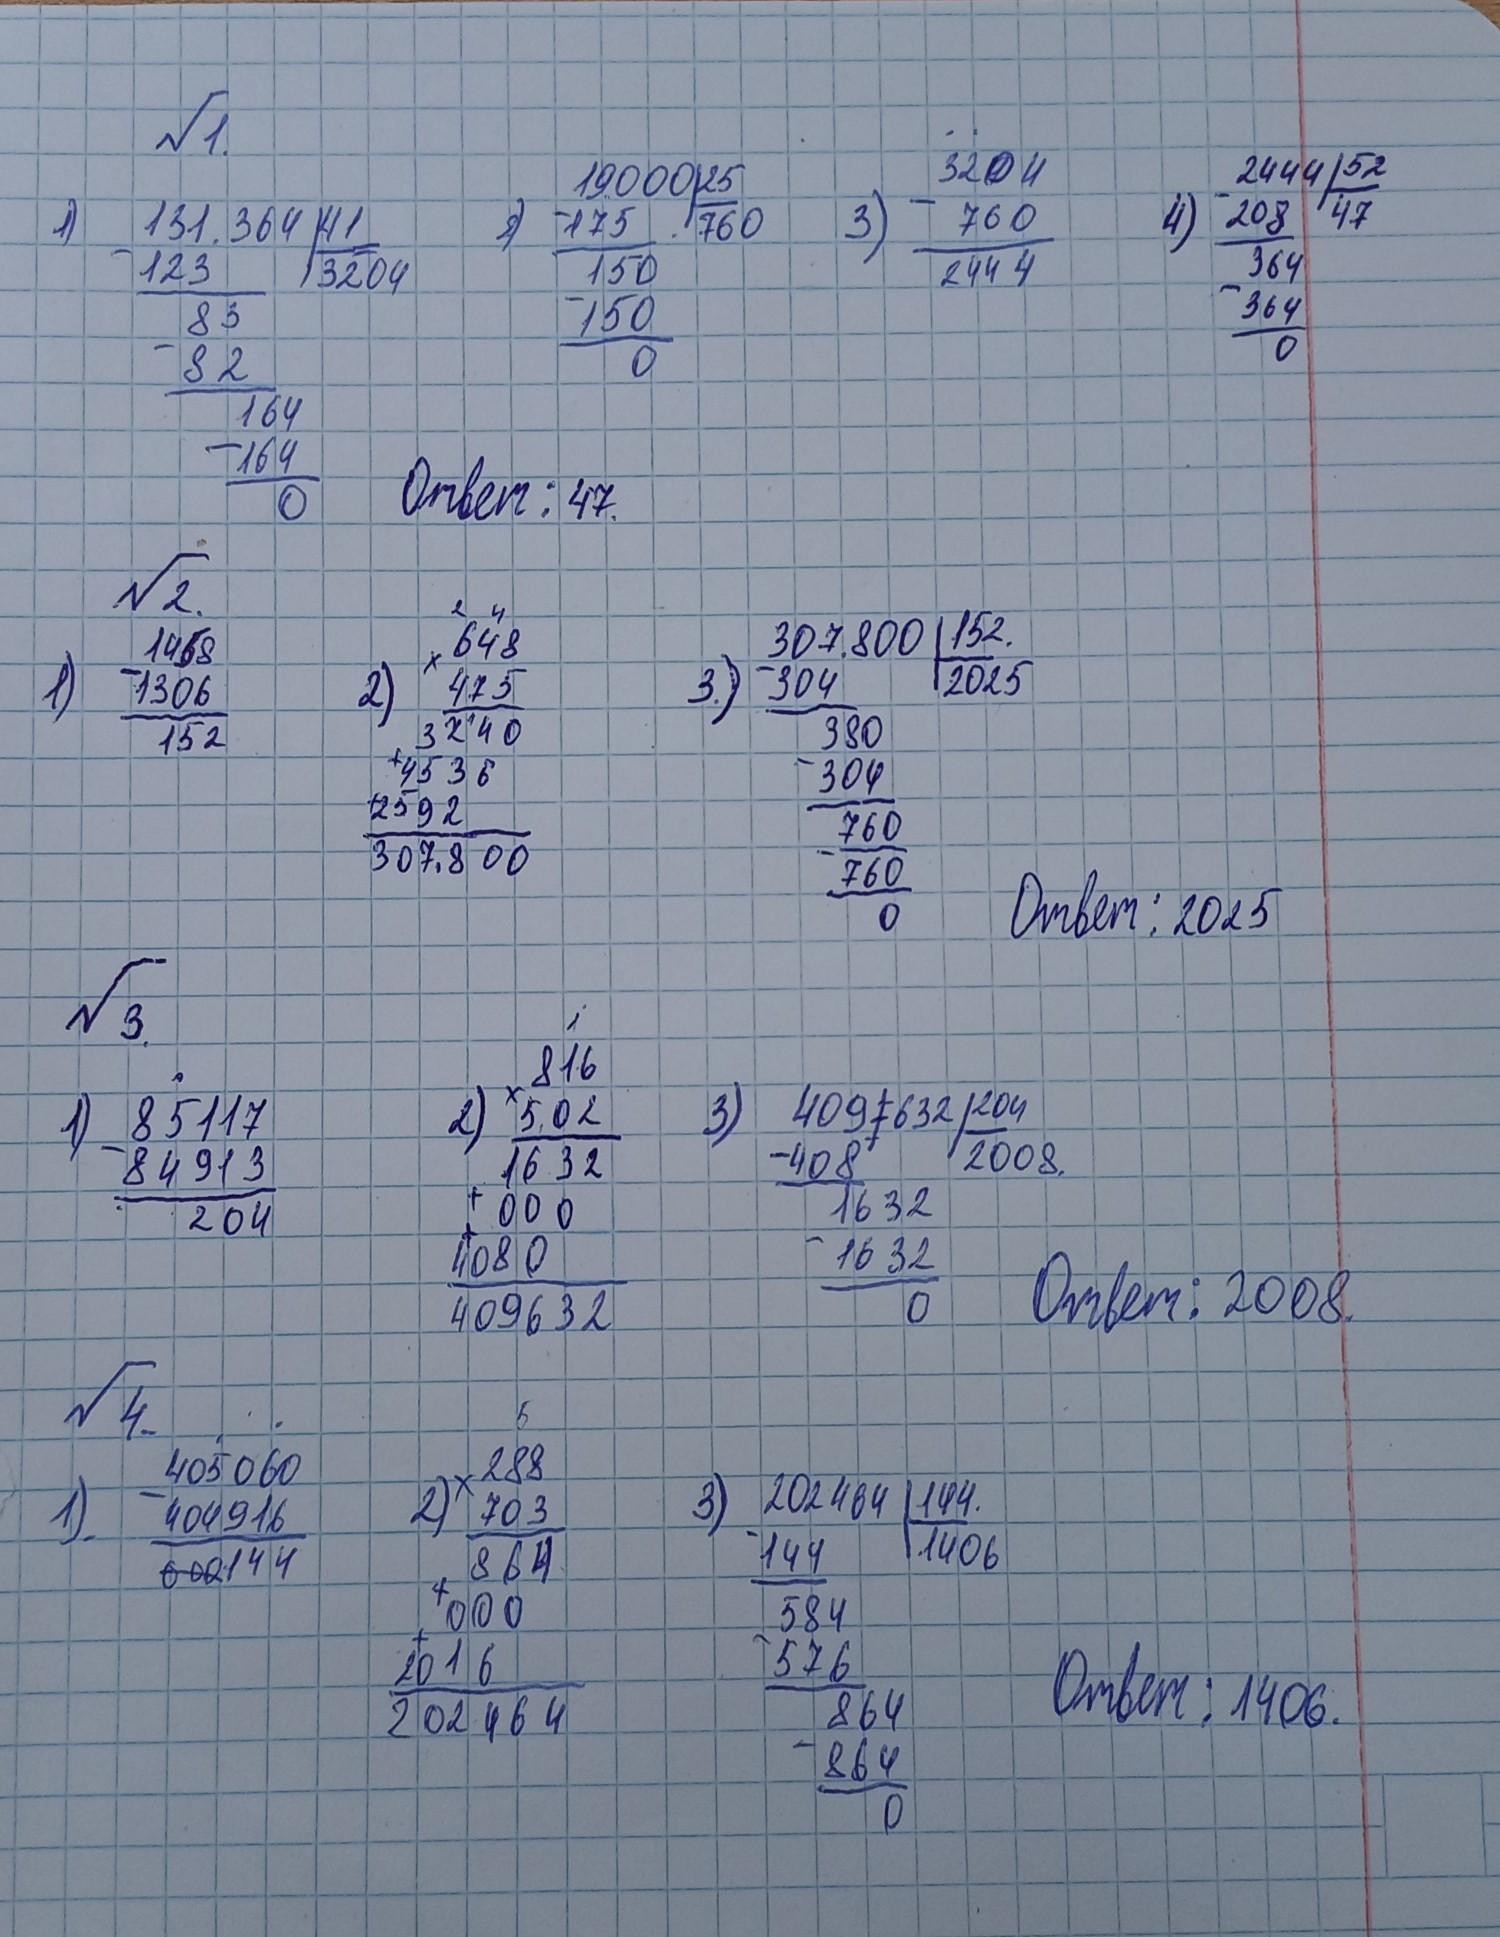 √1.
1) 131.364 | 41
- 123 | 3204
83
- 82
164
- 164
0
2) 19000 | 25
- 175 | 760
150
- 150
0
3) 3204
- 760
2444
4) 2444 | 52
- 208 | 47
364
- 364
0
Ответ: 47.
√2.
1) 1458
- 1306
152
2) 2 4
648
× 475
3240
+ 4536
+ 2592
307.800
3.) 307.800 | 152.
- 304 | 2025
380
- 304
760
- 760
0
Ответ: 2025
√3.
1) 85117
- 84913
204
2) 1
816
× 502
1632
+ 000
+ 4080
409632
3) 4097632 | 204
- 408 | 2008.
1632
- 1632
0
Ответ: 2008.
√4.
1). 405060
- 404916
144
2) 5
288
× 703
864
+ 000
+ 2016
202464
3) 202464 | 144.
- 144 | 1406
584
- 576
864
- 864
0
Ответ: 1406.